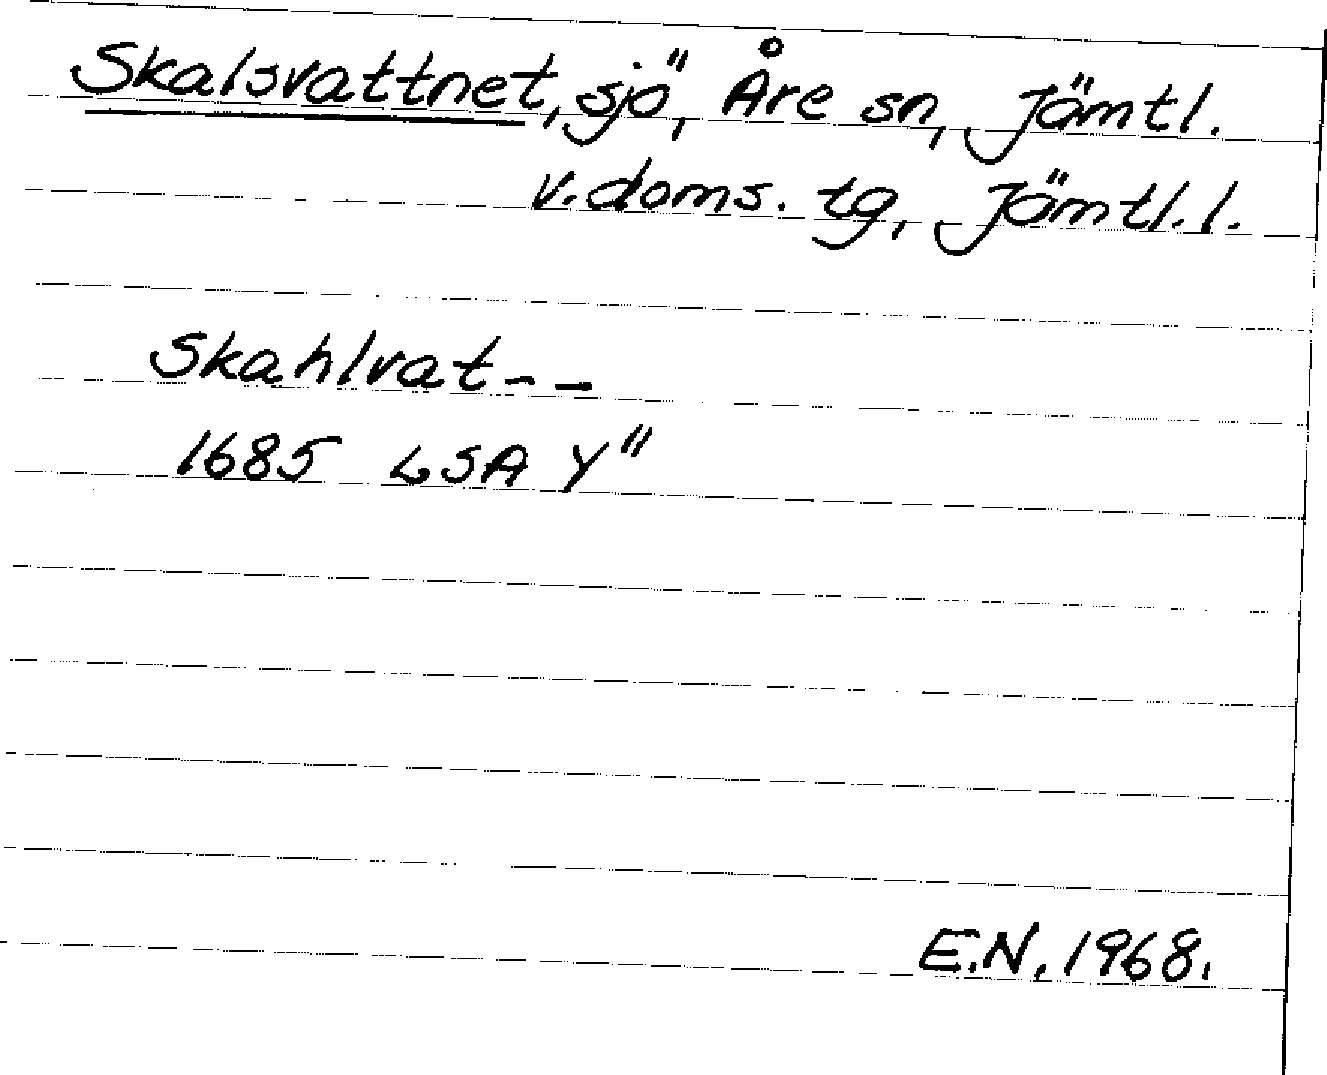 Skalsvattnet, sjö, Åre sn, Jämtl.
v. doms. tg, Jämtl. l.
Skahlvat--
1685 LSA Y"
E.N. 1968.